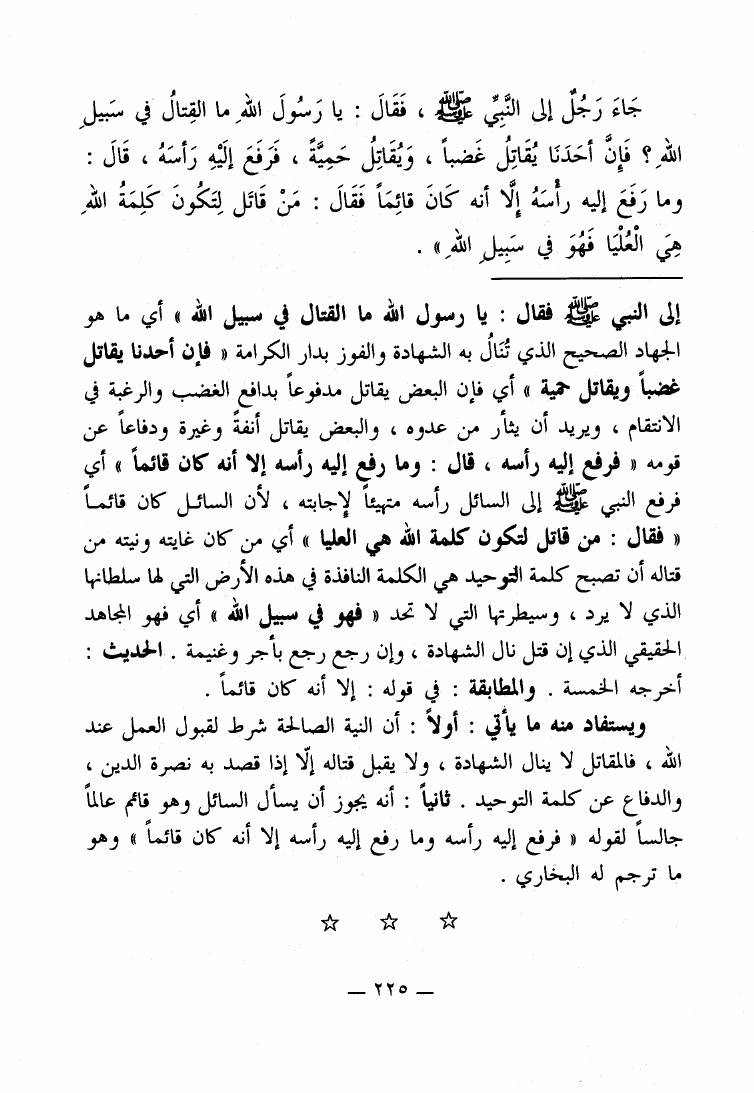 جَاءَ رَجُلٌ إلى النَّبِيِّ ﷺ ، فَقَالَ : يا رَسُولَ اللهِ ما القِتالُ في سَبِيلِ
اللهِ ؟ فَإِنَّ أحَدَنَا يُقَاتِلُ غَضباً ، وَيُقَاتِلُ حَمِيَّةً ، فَرَفَعَ إلَيْهِ رَأسَهُ ، قَالَ :
وما رَفَعَ إليه رأْسَهُ إلَّا أنه كَانَ قائِمَاً فَقَالَ : مَنْ قَاتَل لِتَكُونَ كَلِمَةُ اللهِ
هِيَ الْعُلْيَا فَهُوَ في سَبِيلِ اللهِ » .
إلى النبي ﷺ فقال : يا رسول الله ما القتال في سبيل الله » أي ما هو
الجهاد الصحيح الذي تُنَالُ به الشهادة والفوز بدار الكرامة « فإن أحدنا يقاتل
غضباً ويقاتل حمية » أي فإن البعض يقاتل مدفوعاً بدافع الغضب والرغبة في
الانتقام ، ويريد أن يثأر من عدوه ، والبعض يقاتل أنفةً وغيرة ودفاعاً عن
قومه « فرفع إليه رأسه ، قال : وما رفع إليه رأسه إلا أنه كان قائماً » أي
فرفع النبي ﷺ إلى السائل رأسه متهيئاً لإجابته ، لأن السائل كان قائماً
« فقال : من قاتل لتكون كلمة الله هي العليا » أي من كان غايته ونيته من
قتاله أن تصبح كلمة التوحيد هي الكلمة النافذة في هذه الأرض التي لها سلطانها
الذي لا يرد ، وسيطرتها التي لا تحد « فهو في سبيل الله » أي فهو المجاهد
الحقيقي الذي إن قتل نال الشهادة ، وإن رجع رجع بأجر وغنيمة . الحديث :
أخرجه الخمسة . والمطابقة : في قوله : إلا أنه كان قائماً .
ويستفاد منه ما يأتي : أولاً : أن النية الصالحة شرط لقبول العمل عند
الله ، فالمقاتل لا ينال الشهادة ، ولا يقبل قتاله إلّا إذا قصد به نصرة الدين ،
والدفاع عن كلمة التوحيد . ثانياً : أنه يجوز أن يسأل السائل وهو قائم عالماً
جالساً لقوله « فرفع إليه رأسه وما رفع إليه رأسه إلا أنه كان قائماً » وهو
ما ترجم له البخاري .
☆ ☆ ☆
— ٢٢٥ —